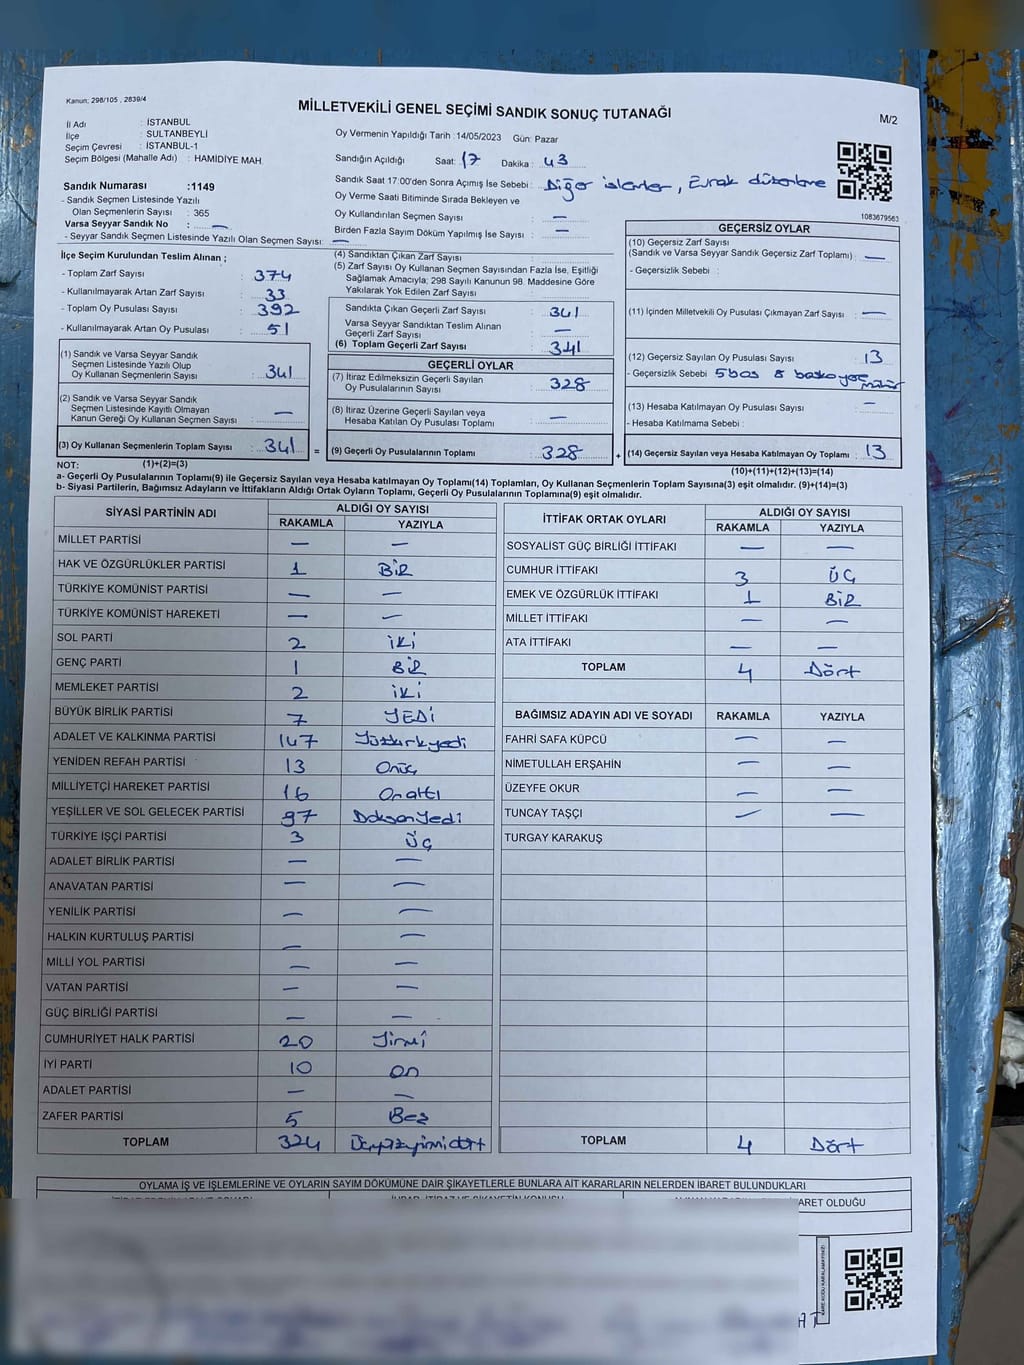 Kanun; 298/105 , 2839/4
MİLLETVEKİLİ GENEL SEÇİMİ SANDIK SONUÇ TUTANAĞI
M/2
İl Adı : İSTANBUL
İlçe : SULTANBEYLİ
Seçim Çevresi : İSTANBUL-1
Seçim Bölgesi (Mahalle Adı) : HAMİDİYE MAH.
Oy Vermenin Yapıldığı Tarih :14/05/2023 Gün: Pazar
Sandığın Açıldığı Saat: 17 Dakika : 43
Sandık Saat 17:00'den Sonra Açımış İse Sebebi : Diğer işlemler, Evrak düzenleme
Oy Verme Saati Bitiminde Sırada Bekleyen ve
Oy Kullandırılan Seçmen Sayısı : —
Birden Fazla Sayım Döküm Yapılmış İse Sayısı : —
1083679563
Sandık Numarası :1149
- Sandık Seçmen Listesinde Yazılı
Olan Seçmenlerin Sayısı : 365
Varsa Seyyar Sandık No : —
- Seyyar Sandık Seçmen Listesinde Yazılı Olan Seçmen Sayısı: —
İlçe Seçim Kurulundan Teslim Alınan ;
- Toplam Zarf Sayısı : 374
- Kullanılmayarak Artan Zarf Sayısı : 33
- Toplam Oy Pusulası Sayısı : 392
- Kullanılmayarak Artan Oy Pusulası : 51
(1) Sandık ve Varsa Seyyar Sandık
Seçmen Listesinde Yazılı Olup
Oy Kullanan Seçmenlerin Sayısı : 341
(2) Sandık ve Varsa Seyyar Sandık
Seçmen Listesinde Kayıtlı Olmayan
Kanun Gereği Oy Kullanan Seçmen Sayısı : —
(3) Oy Kullanan Seçmenlerin Toplam Sayısı : 341 =
(4) Sandıktan Çıkan Zarf Sayısı :
(5) Zarf Sayısı Oy Kullanan Seçmen Sayısından Fazla İse, Eşitliği
Sağlamak Amacıyla; 298 Sayılı Kanunun 98. Maddesine Göre
Yakılarak Yok Edilen Zarf Sayısı :
Sandıkta Çıkan Geçerli Zarf Sayısı : 341
Varsa Seyyar Sandıktan Teslim Alınan
Geçerli Zarf Sayısı : —
(6) Toplam Geçerli Zarf Sayısı : 341
GEÇERLİ OYLAR
(7) İtiraz Edilmeksizin Geçerli Sayılan
Oy Pusulalarının Sayısı : 328
(8) İtiraz Üzerine Geçerli Sayılan veya
Hesaba Katılan Oy Pusulası Toplamı : —
(9) Geçerli Oy Pusulalarının Toplamı : 328 +
GEÇERSİZ OYLAR
(10) Geçersiz Zarf Sayısı
(Sandık ve Varsa Seyyar Sandık Geçersiz Zarf Toplamı) : —
- Geçersizlik Sebebi :
(11) İçinden Milletvekili Oy Pusulası Çıkmayan Zarf Sayısı : —
(12) Geçersiz Sayılan Oy Pusulası Sayısı : 13
- Geçersizlik Sebebi 5 boş 8 başka
(13) Hesaba Katılmayan Oy Pusulası Sayısı : —
- Hesaba Katılmama Sebebi :
(14) Geçersiz Sayılan veya Hesaba Katılmayan Oy Toplamı : 13
NOT: (1)+(2)=(3)
(10)+(11)+(12)+(13)=(14)
a- Geçerli Oy Pusulalarının Toplamı(9) ile Geçersiz Sayılan veya Hesaba katılmayan Oy Toplamı(14) Toplamları, Oy Kullanan Seçmenlerin Toplam Sayısına(3) eşit olmalıdır. (9)+(14)=(3)
b- Siyasi Partilerin, Bağımsız Adayların ve İttifakların Aldığı Ortak Oyların Toplamı, Geçerli Oy Pusulalarının Toplamına(9) eşit olmalıdır.
SİYASİ PARTİNİN ADI ALDIĞI OY SAYISI
RAKAMLA YAZIYLA
MİLLET PARTİSİ — —
HAK VE ÖZGÜRLÜKLER PARTİSİ 1 BİR
TÜRKİYE KOMÜNİST PARTİSİ — —
TÜRKİYE KOMÜNİST HAREKETİ — —
SOL PARTİ 2 İKİ
GENÇ PARTİ 1 BİR
MEMLEKET PARTİSİ 2 İKİ
BÜYÜK BİRLİK PARTİSİ 7 YEDİ
ADALET VE KALKINMA PARTİSİ 147 Yüzkırkyedi
YENİDEN REFAH PARTİSİ 13 Onüç
MİLLİYETÇİ HAREKET PARTİSİ 16 Onaltı
YEŞİLLER VE SOL GELECEK PARTİSİ 97 Doksanyedi
TÜRKİYE İŞÇİ PARTİSİ 3 ÜÇ
ADALET BİRLİK PARTİSİ — —
ANAVATAN PARTİSİ — —
YENİLİK PARTİSİ — —
HALKIN KURTULUŞ PARTİSİ — —
MİLLİ YOL PARTİSİ — —
VATAN PARTİSİ — —
GÜÇ BİRLİĞİ PARTİSİ — —
CUMHURİYET HALK PARTİSİ 20 Yirmi
İYİ PARTİ 10 On
ADALET PARTİSİ — —
ZAFER PARTİSİ 5 Beş
TOPLAM 324 Üçyüzyirmidört
İTTİFAK ORTAK OYLARI ALDIĞI OY SAYISI
RAKAMLA YAZIYLA
SOSYALİST GÜÇ BİRLİĞİ İTTİFAKI — —
CUMHUR İTTİFAKI 3 ÜÇ
EMEK VE ÖZGÜRLÜK İTTİFAKI 1 BİR
MİLLET İTTİFAKI — —
ATA İTTİFAKI — —
TOPLAM 4 Dört
BAĞIMSIZ ADAYIN ADI VE SOYADI RAKAMLA YAZIYLA
FAHRİ SAFA KÜPCÜ — —
NİMETULLAH ERŞAHİN — —
ÜZEYFE OKUR — —
TUNCAY TAŞÇI — —
TURGAY KARAKUŞ
TOPLAM 4 Dört
OYLAMA İŞ VE İŞLEMLERİNE VE OYLARIN SAYIM DÖKÜMÜNE DAİR ŞİKAYETLERLE BUNLARA AİT KARARLARIN NELERDEN İBARET BULUNDUKLARI
İBARET OLDUĞU